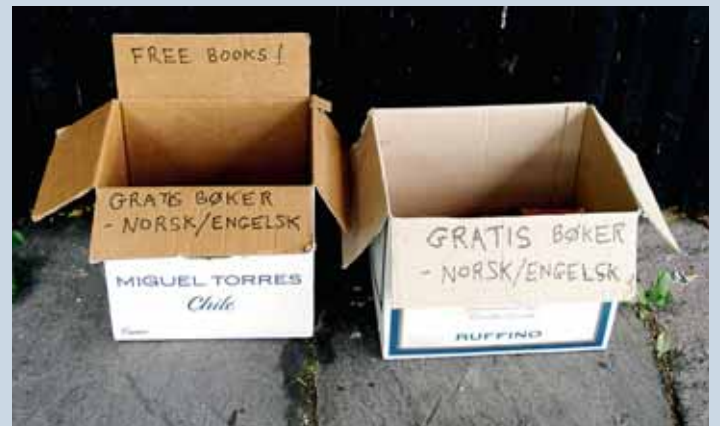 FREE BOOKS!
GRATIS BØKER
- NORSK/ENGELSK
MIGUEL TORRES
Chile
GRATIS BØKER
- NORSK/ENGELSK
RUFFINO